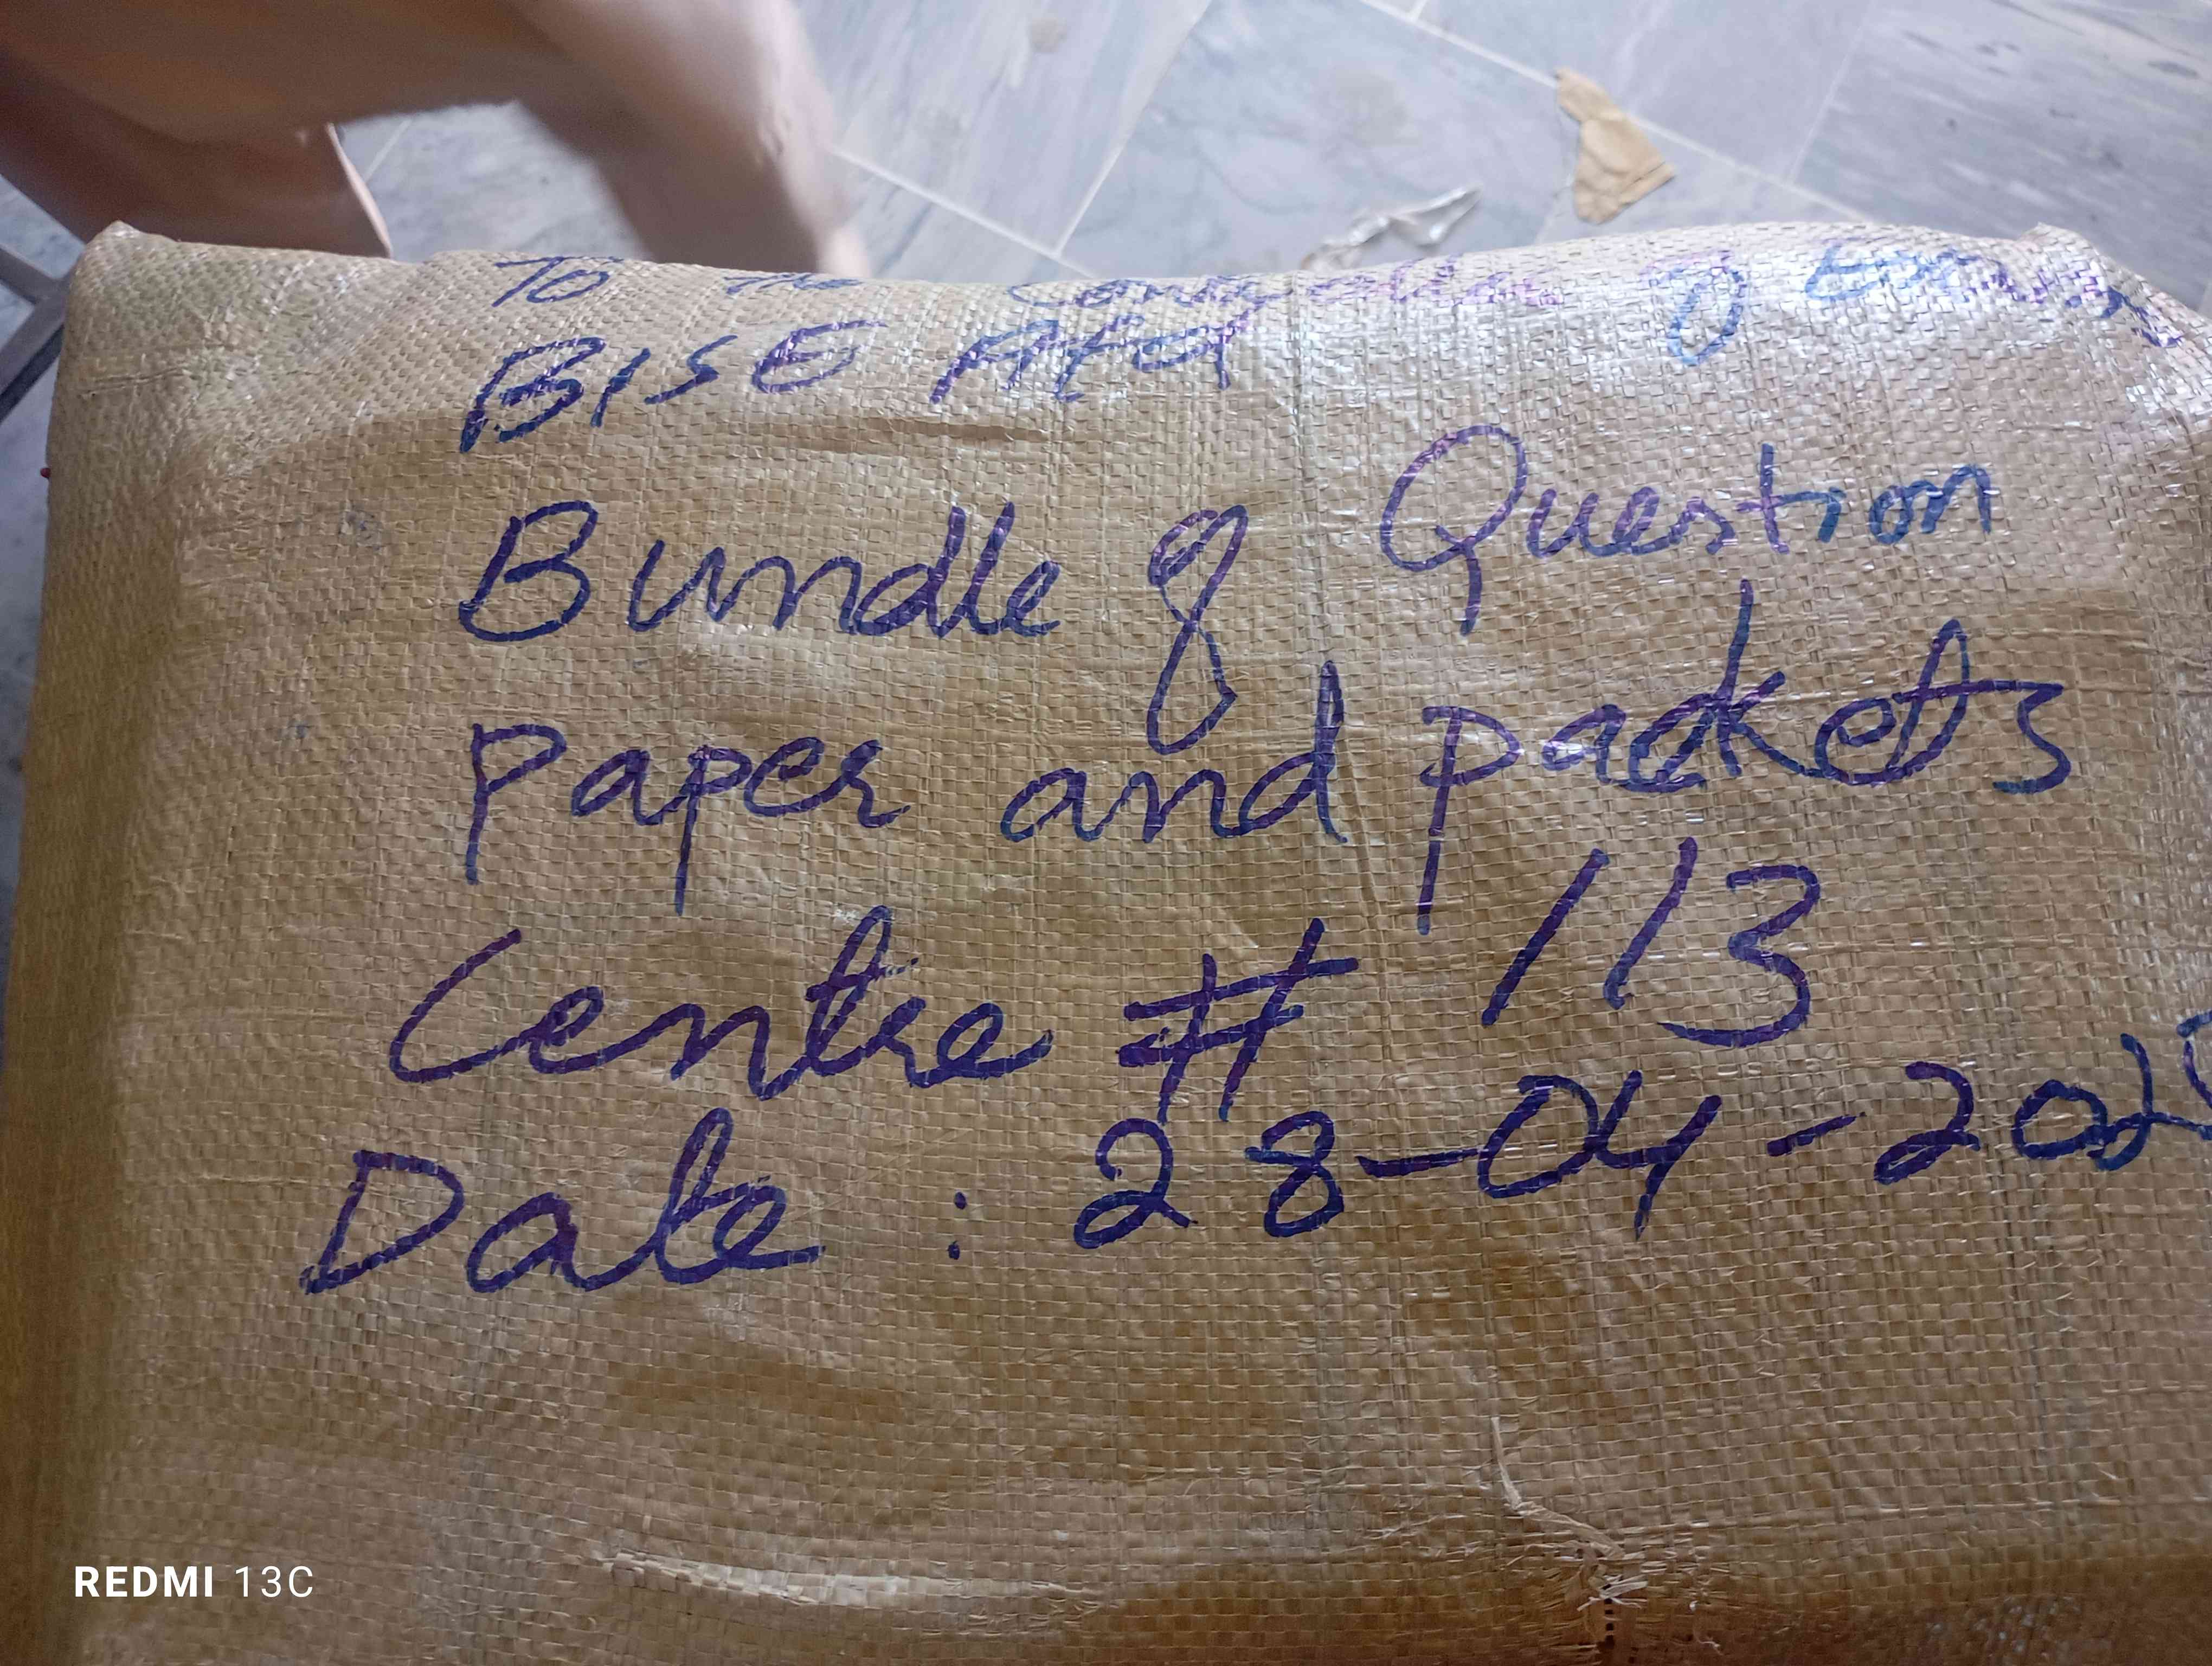 To the Controller of Exams
BISE Atd
Bundle of Question
Paper and packets
Centre # 113
Date : 28-04-202
REDMI 13C